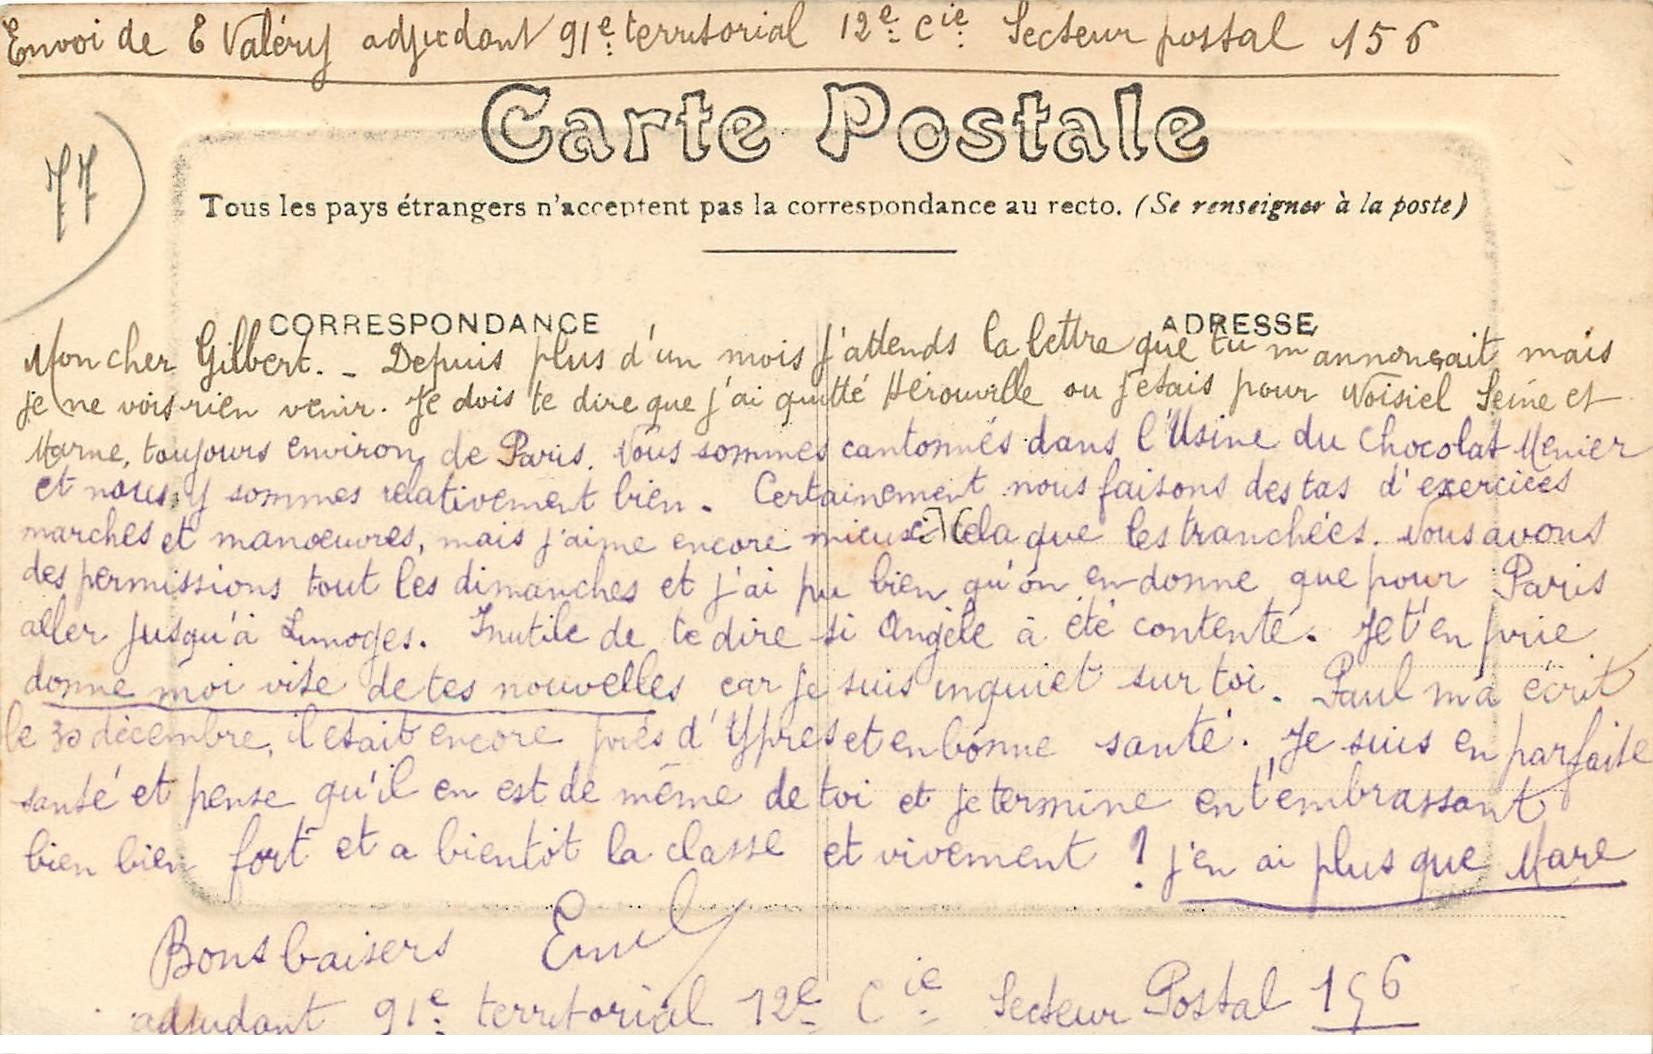 Envoi de E Valéry adjudant 91e territorial 12e Cie Secteur postal 156
Carte Postale
77
Tous les pays étrangers n'acceptent pas la correspondance au recto. (Se renseigner à la poste)
CORRESPONDANCE
ADRESSE
Mon cher Gilbert. - Depuis plus d'un mois j'attends la lettre que tu m'annonçait mais
je ne vois rien venir. Je dois te dire que j'ai quitté Hérouville ou j'etais pour Noisiel Seine et
Marne, toujours environ de Paris. Nous sommes cantonnés dans l'Usine du Chocolat Menier
et nous y sommes relativement bien. Certainement nous faisons des tas d'exercices
marches et manœuvres, mais j'aime encore mieux cela que les tranchées. Nous avons
des permissions tout les dimanches et j'ai pu bien qu'on en donne que pour Paris
aller jusqu'à Limoges. Inutile de te dire si Angèle à été contente. Je t'en prie
donne moi vite de tes nouvelles car je suis inquiet sur toi. Paul m'a écrit
le 30 décembre, il etait encore près d'Ypres et en bonne santé. Je suis en parfaite
santé et pense qu'il en est de même de toi et je termine en t'embrassant
bien bien fort et a bientôt la classe et vivement ! j'en ai plus que Mare
Bons baisers Emile
adjudant 91e territorial 12e Cie Secteur Postal 156